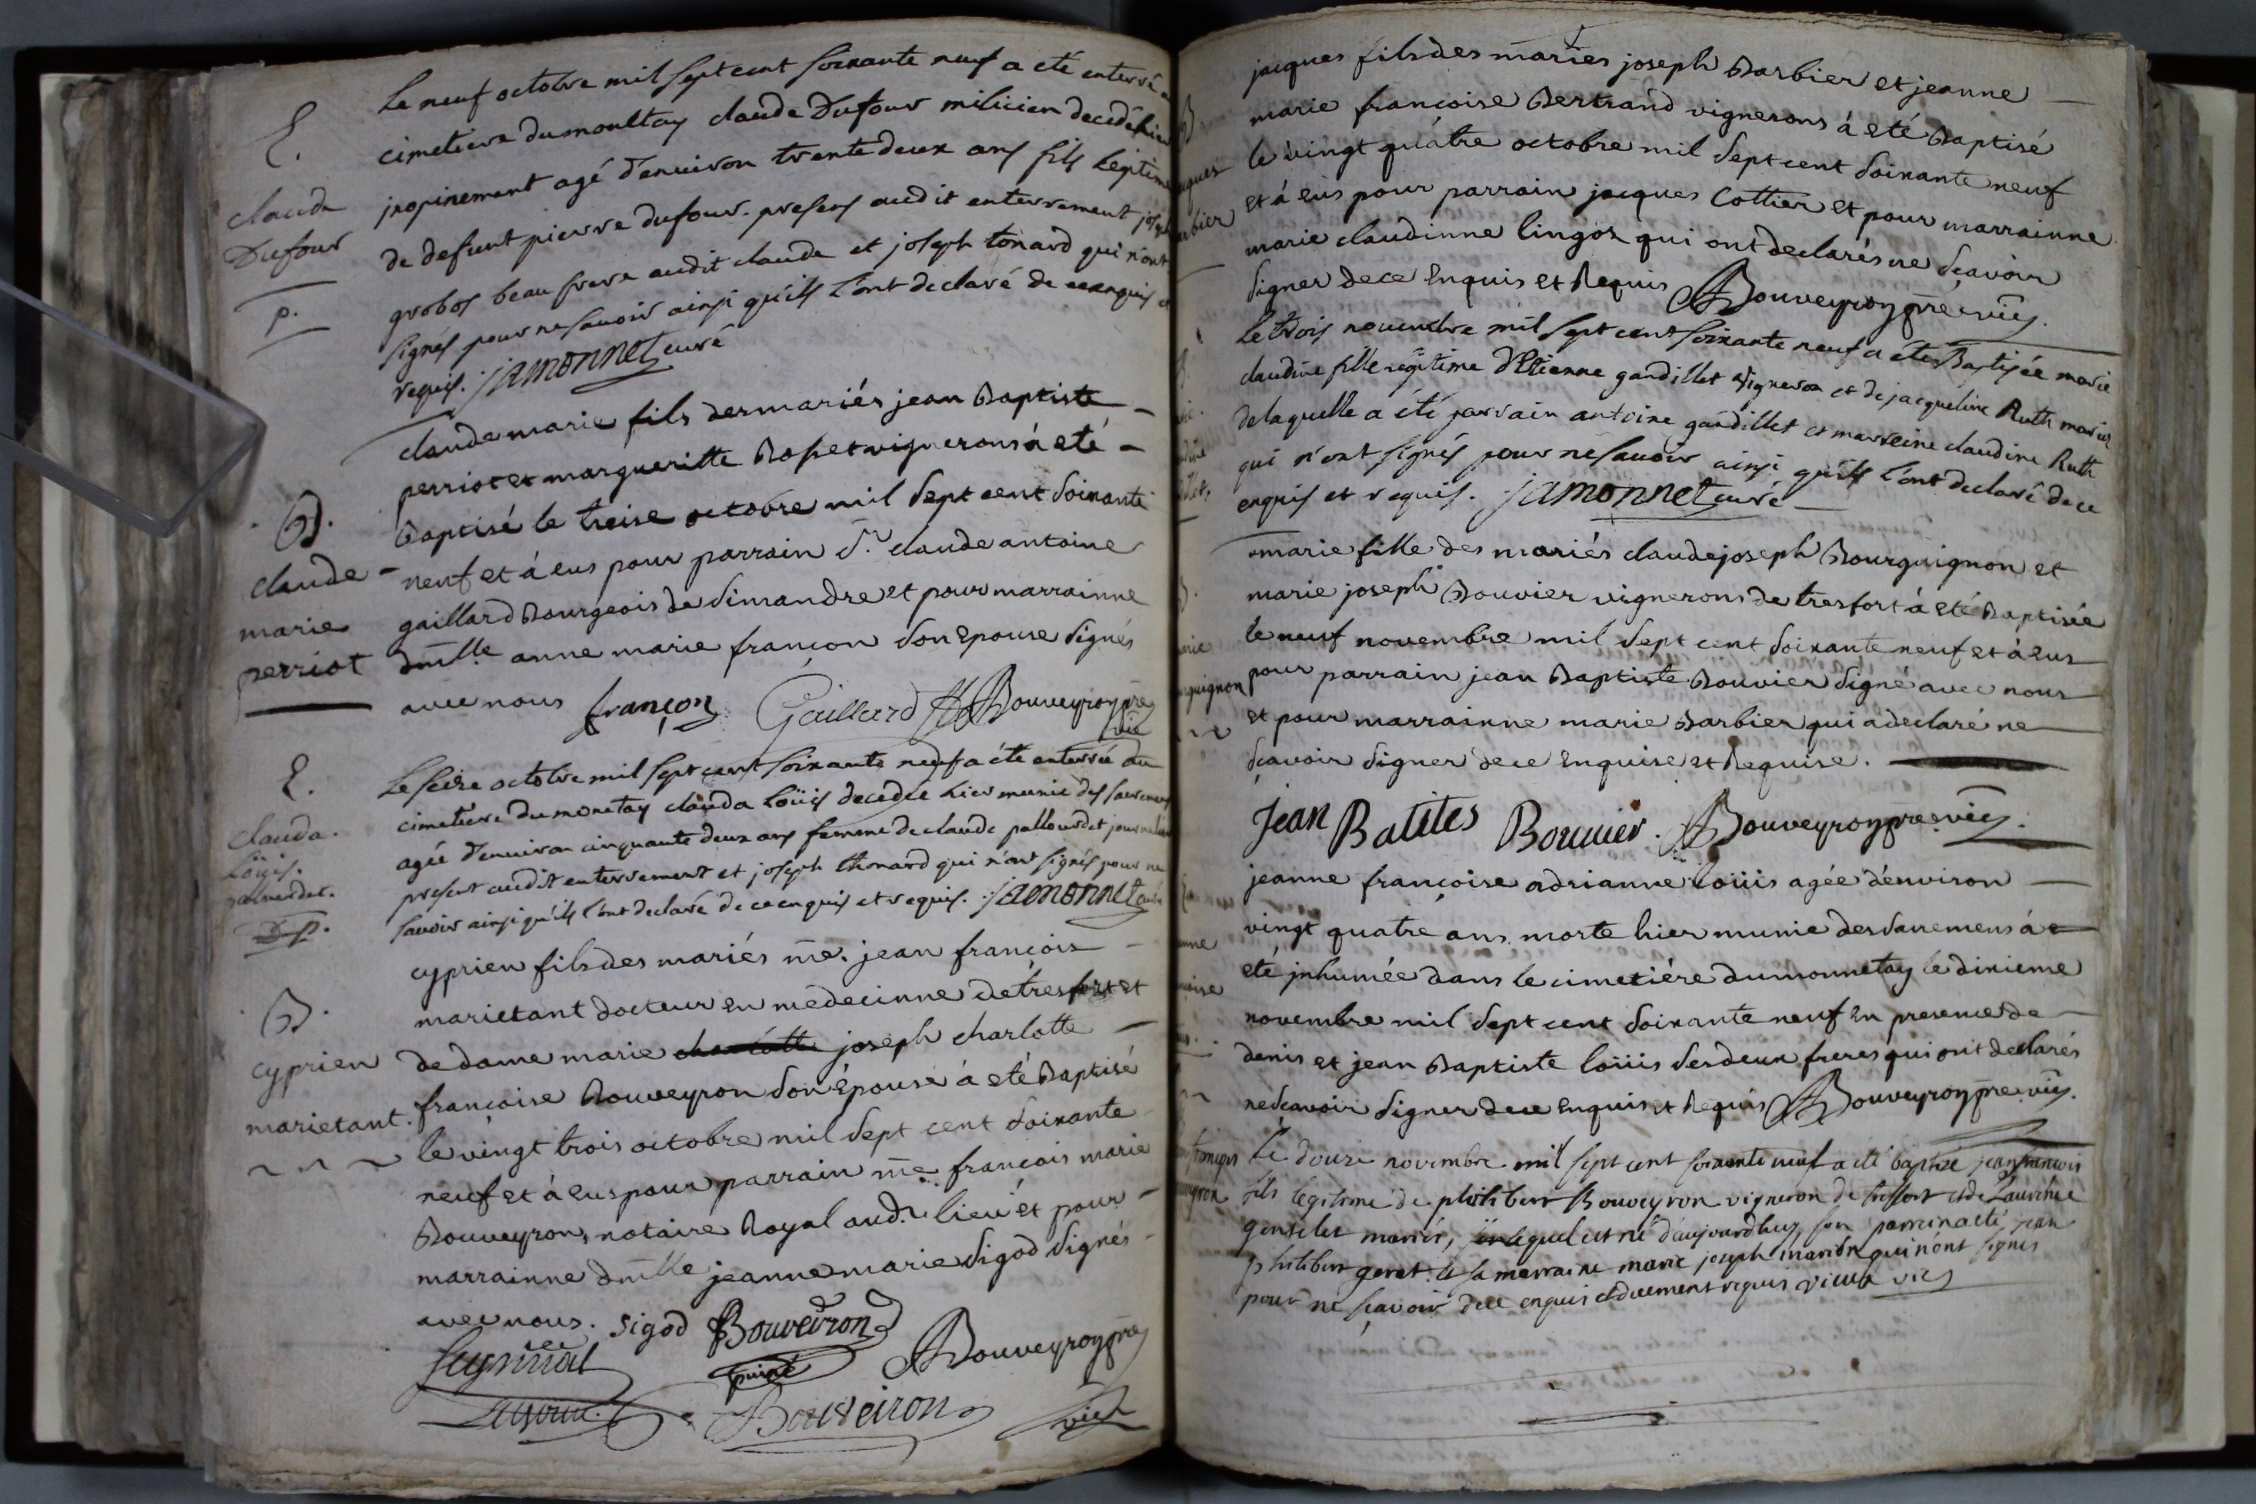 E.
claude
Dufour
p.
Le neuf octobre mil sept cent soixante neuf a eté enterré
cimetiere dumonltay claude Dufour milicien decedé hier
jnopinement agé d'enuiron trente deux ans fils legitime
de defunt pierre dufour. presens audit enterrement joseph
grobos beau frere audit claude et joseph tonard qui n'ont
signés pour ne sauoir ainsi qu'ils l'ont declaré de ce enquis et
requis. jamonnet curé
B.
claude
marie
perriot
claude marie fils des mariés jean Baptiste
perriot et margueritte Rosset vignerons à eté
Baptisé le treise octobre mil sept cent soixante
neuf et à eus pour parrain Sr. claude antoine
gaillard Bourgeois de simandre et pour marrainne
dmlle anne marie françon son epouse signés
avec nous françon Gaillard Bouveyron pre
vic
E.
clauda.
Loüis.
pallourdet.
D p.
Le seize octobre mil sept cent soixante neuf a été enterrée au
cimetiere du monetay clauda Loüis decedée hier munie des sacremens
agée d'enuiron cinquante deux ans femme de claude pallourdet journalier
present audit enterrement et joseph thonard qui n'ont signés pour ne
sauoir ainsi qu'ils l'ont declaré de ce enquis et requis. jamonnet curé
B.
cyprien
marietant.
cyprien fils des mariés me. jean françois
marietant docteur en medecinne de tresfort et
de dame marie charlotte joseph charlotte
françoise Bouveyron son épouse à eté Baptisé
le vingt trois octobre mil sept cent soixante
neuf et à eus pour parrain me françois marie
Bouveyron, notaire Royal aud. lieu et pour
marrainne dmlle jeanne marie sigod signés
avec nous. sigod Bouveiron
puiné Bouveyron pre
Bouveiron vic
jacques fils des mariés joseph Barbier et jeanne
marie françoise Bertrand vignerons à eté Baptisé
le vingt quatre octobre mil sept cent soixante neuf
et à eus pour parrain jacques Cottier et pour marrainne
marie claudinne lingoz qui ont declarés ne sçavoir
signer de ce Enquis et Requis Bouveyron pre vic.
Le trois nouembre mil sept cent soixante neuf a été Baptisée marie
claudine fille légitime d'Etienne gandillet vigneron et de jacqueline Ruth mariés
de laquelle a été parrain antoine gandillet et marreine claudine Ruth
qui n'ont signés pour ne sauoir ainsi qu'ils l'ont declaré de ce
enquis et requis. jamonnet curé
marie fille des mariés claude joseph Bourguignon et
marie joseph Bouvier vignerons de tresfort à eté Baptisée
le neuf novembre mil sept cent soixante neuf et à eus
pour parrain jean Baptiste Bouvier signé avec nous
et pour marrainne marie Barbier qui a declaré ne
sçavoir signer de ce Enquise et Requise.
Jean Batites Bouuier. Bouveyron pre vic.
jeanne françoise adrianne loüis agée d'environ
vingt quatre ans morte hier munie des sacremens à
eté jnhumée dans le cimetiére du monnetay le dixieme
novembre mil sept cent soixante neuf en presence de
denis et jean Baptiste loüis ses deux freres qui ont declarés
ne sçavoir signer de ce enquis et Requis Bouveyron pre vic.
Le douze novembre mil sept cent soixante neuf a eté baptisé jean francois
fils legitime de philibert Bouveyron vigneron de tresfort et de Laurence
genselet mariés, lequel est né d'aujourdhuy, son parrein a eté jean
philibert geret. et sa marraine marie joseph qui n'ont signés
pour ne sçavoir de ce enquis et duement requis vieux vic